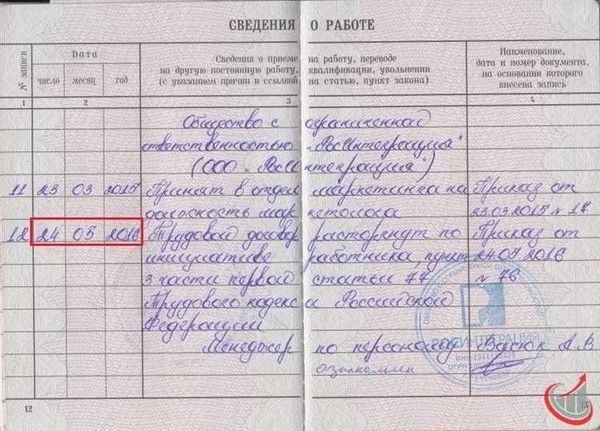 СВЕДЕНИЯ О РАБОТЕ
№ записи
Дата
Сведения о приеме на работу, переводе
на другую постоянную работу, квалификации, увольнении
(с указанием причин и ссылкой на статью, пункт закона)
Наименование,
дата и номер документа,
на основании которого
внесена запись
число месяц год
1 2 3 4
Общество с ограниченной
ответственностью "РосИнтеграция"
(ООО "РосИнтеграция")
11 23 03 2015 Принят в отдел маркетинга на Приказ от
должность маркетолога 23.03.2015 № 17
12 24 05 2016 Трудовой договор расторгнут по Приказ от
инициативе работника, пункт 24.05.2016
3 части первой статьи 77 № 76
Трудового кодекса Российской
Федерации
Менеджер по персоналу Васюк А.В
ознакомлен
12